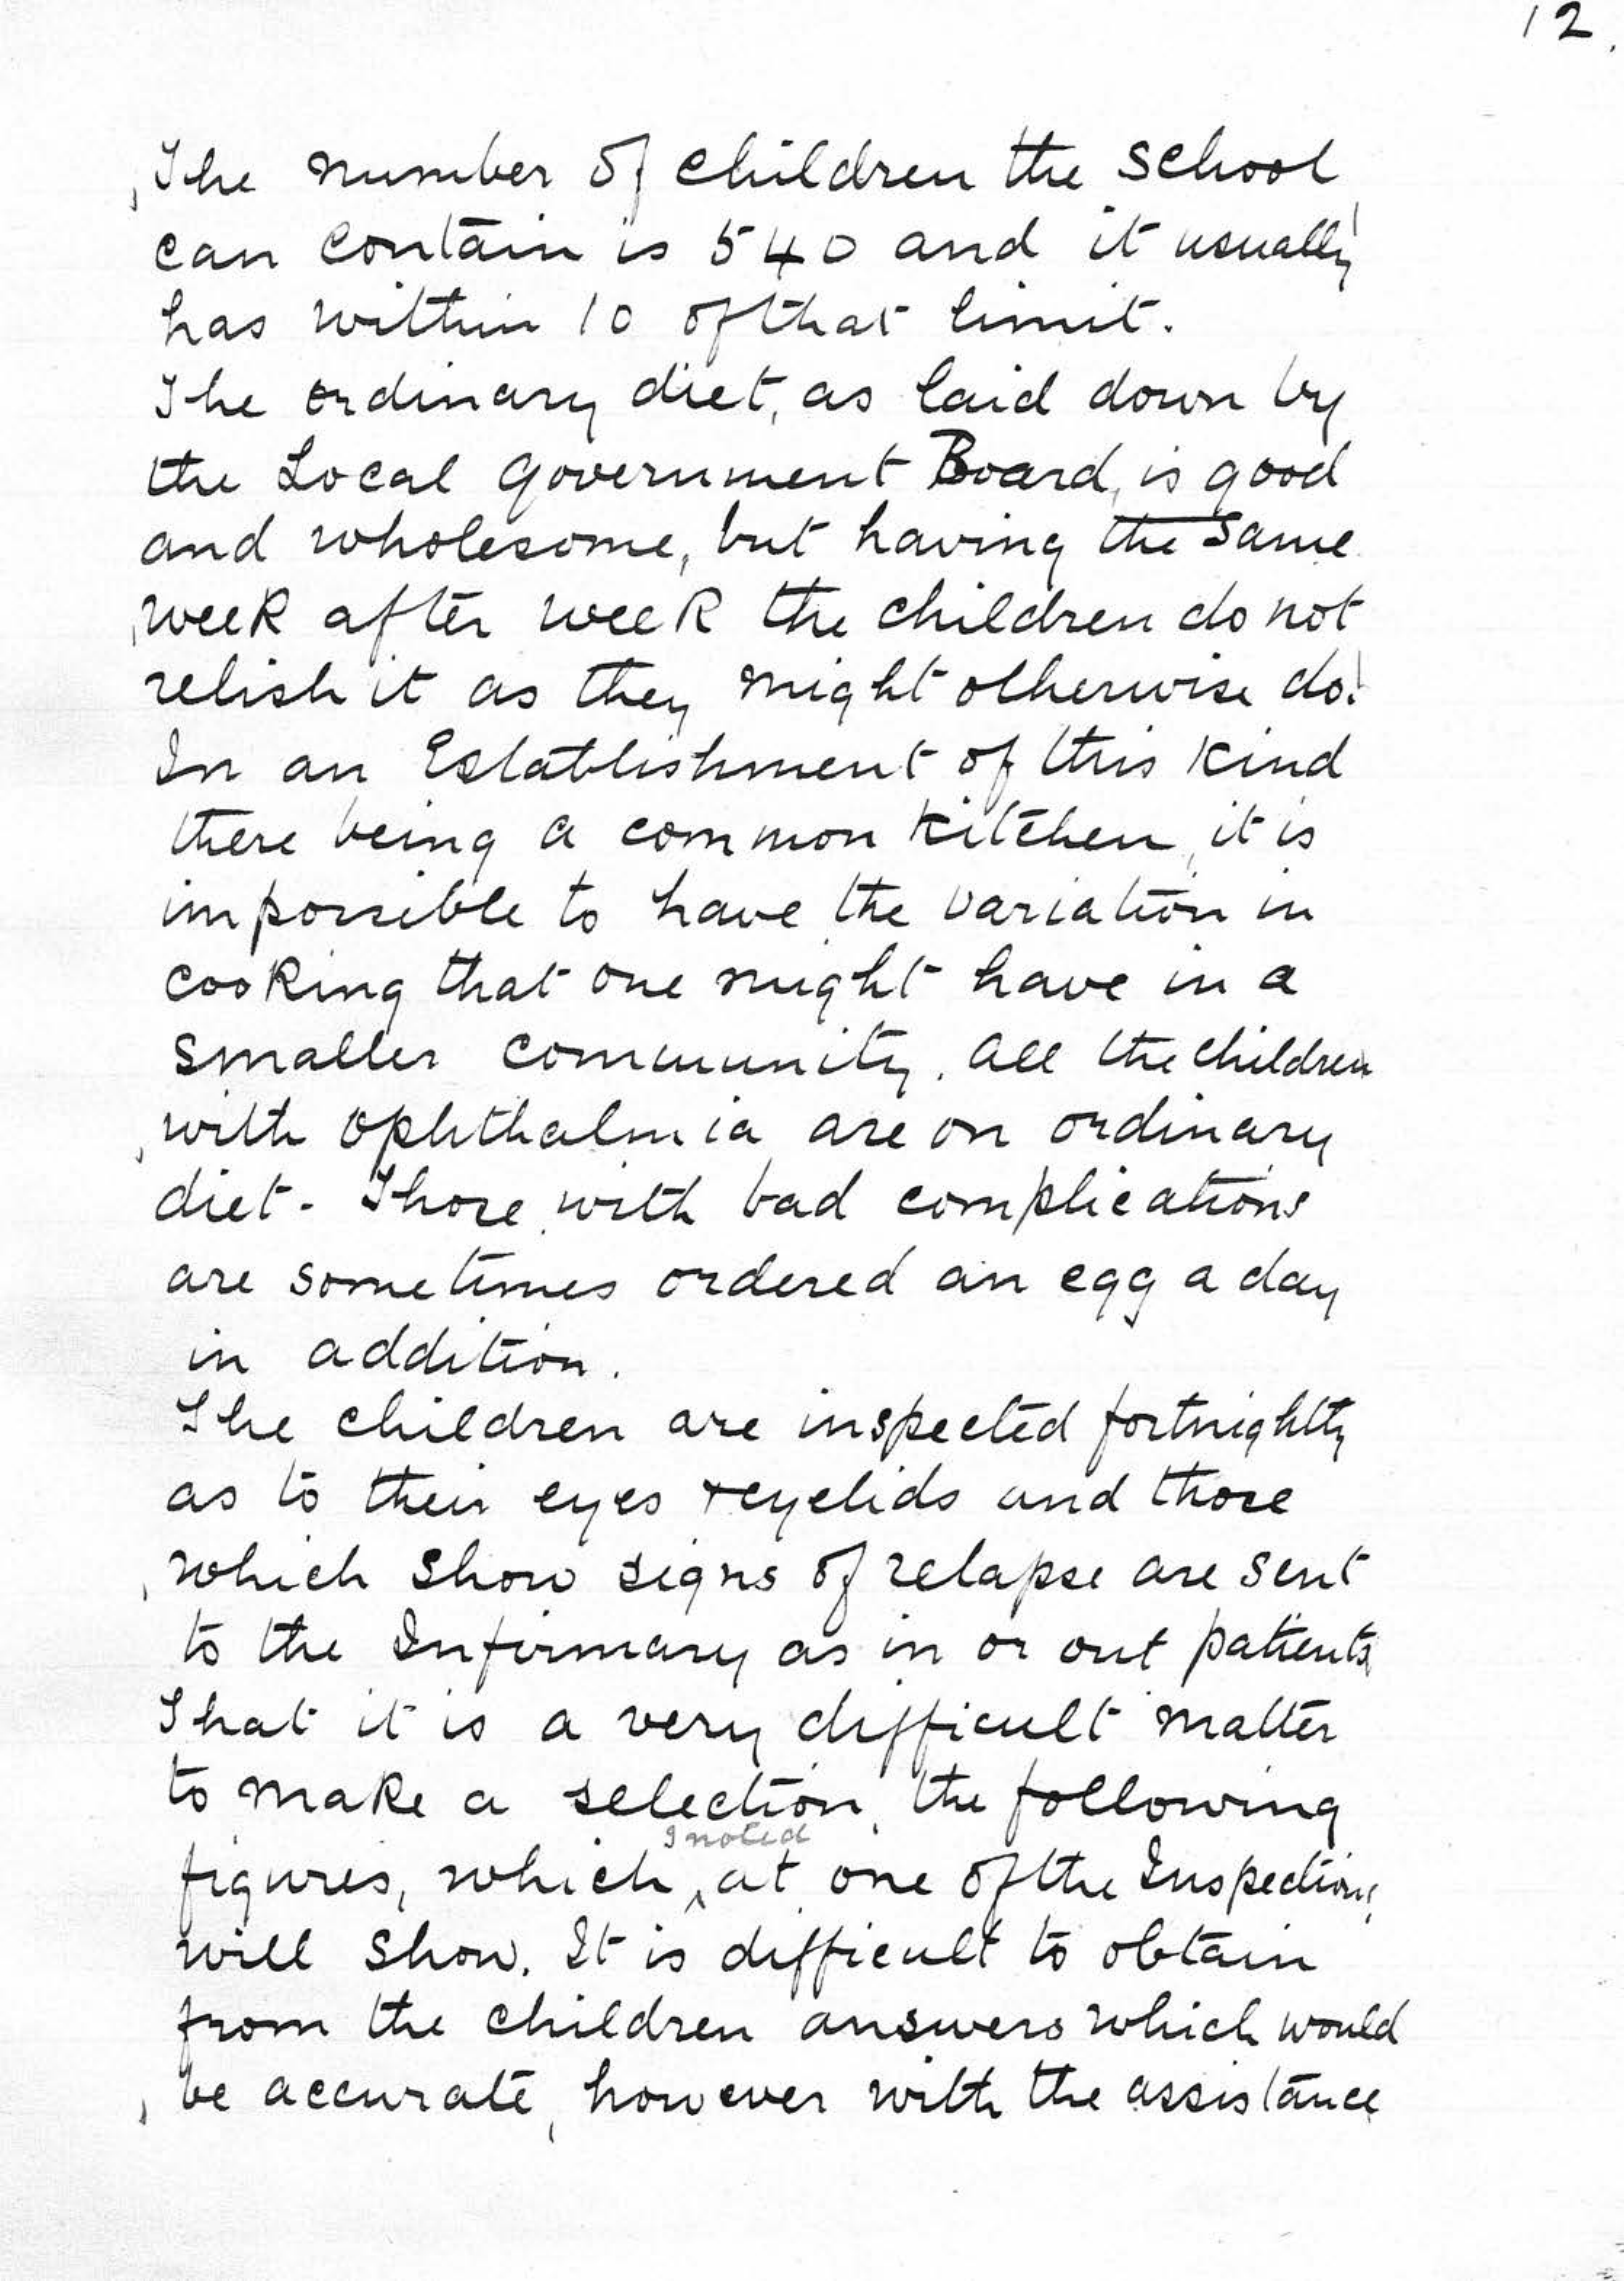 12.
The number of children the School
can contain is 540 and it usually
has within 10 of that limit.
The ordinary diet, as laid down by
the Local Government Board, is good
and wholesome, but having the same
week after week the children do not
relish it as they might otherwise do.
In an Establishment of this kind
there being a common kitchen, it is
impossible to have the variation in
cooking that one might have in a
smaller community. All the children
with Ophthalmia are on ordinary
diet - Those with bad complications
are sometimes ordered an egg a day
in addition.
The children are inspected fortnightly
as to their eyes + eyelids and those
which show signs of relapse are sent
to the Infirmary as in or out patients
That it is a very difficult matter
to make a selection, the following
I noted
figures, which ‸ at one of the Inspections,
will show. It is difficult to obtain
from the children answers which would
be accurate, however with the assistance